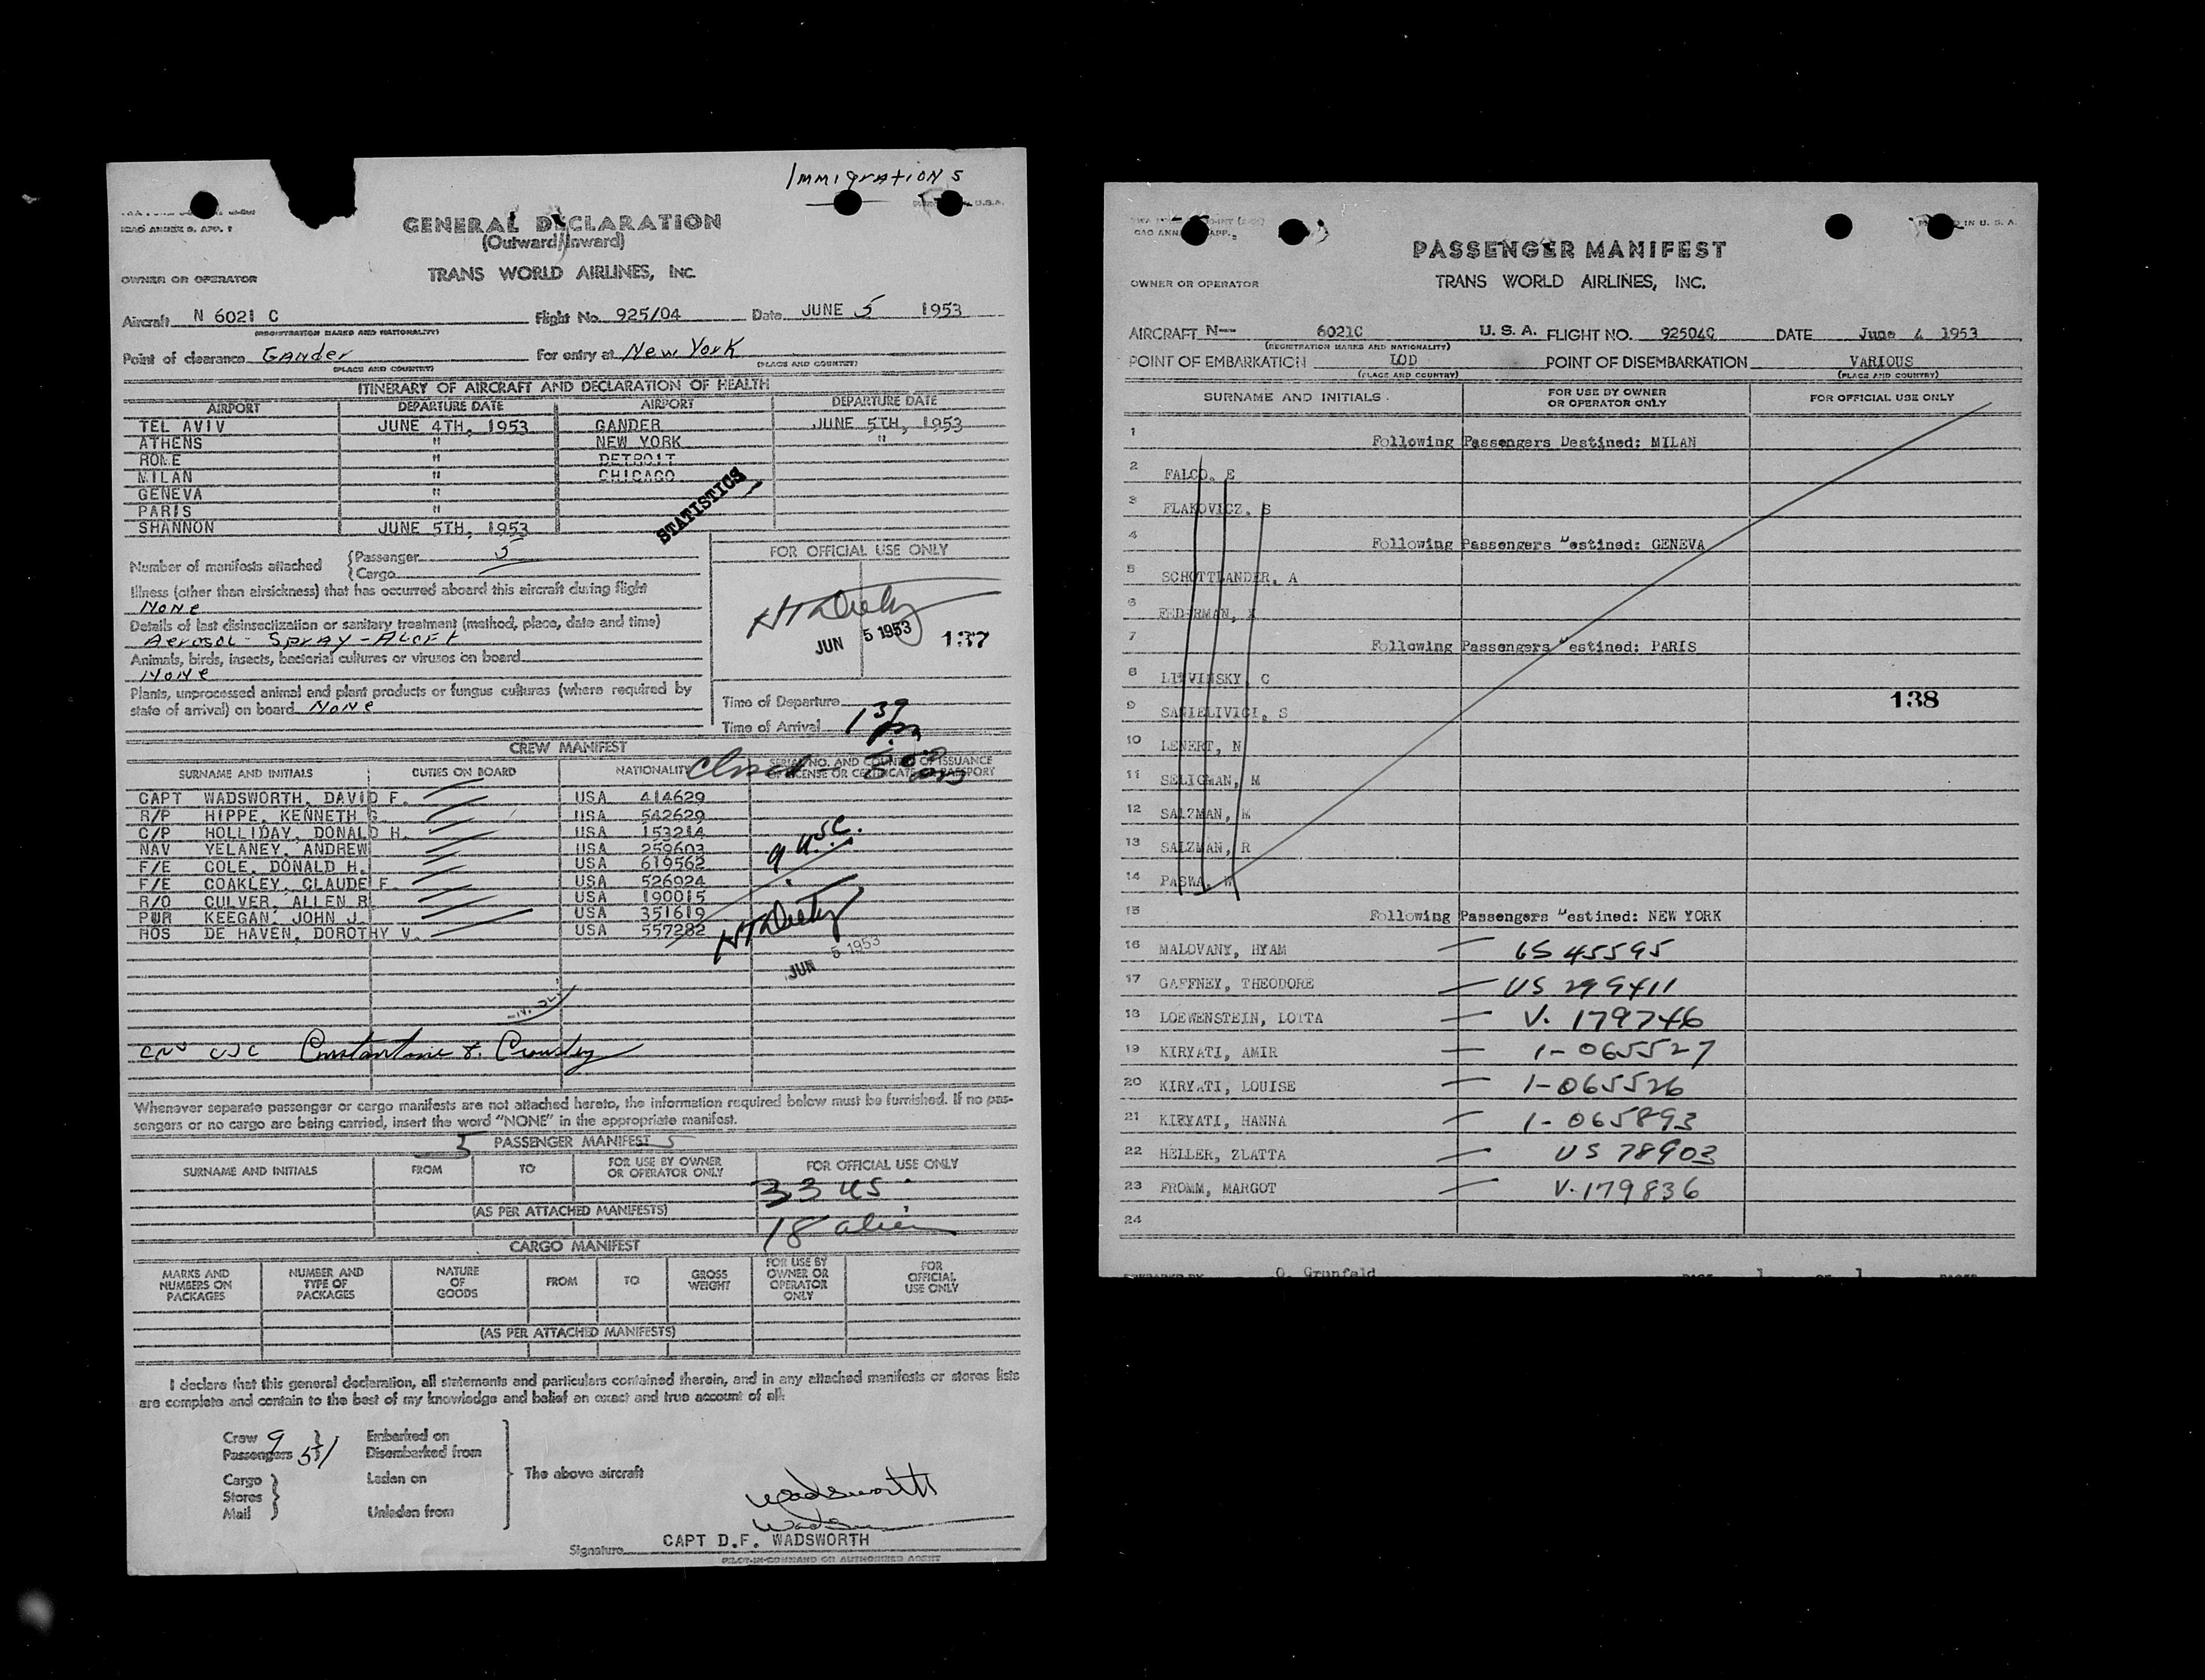 Immigration 5
ICAO ANNEX 9, APP. 1
GENERAL DECLARATION
(Outward/Inward)
OWNER OR OPERATOR TRANS WORLD AIRLINES, INC.
Aircraft N 6021 C Flight No. 925/04 Date JUNE 5 1953
(REGISTRATION MARKS AND NATIONALITY)
Point of clearance Gander For entry at New York
(PLACE AND COUNTRY) (PLACE AND COUNTRY)
ITINERARY OF AIRCRAFT AND DECLARATION OF HEALTH
AIRPORT DEPARTURE DATE AIRPORT DEPARTURE DATE
TEL AVIV JUNE 4TH, 1953 GANDER JUNE 5TH, 1953
ATHENS " NEW YORK "
ROME " DETROIT
MILAN " CHICAGO
GENEVA "
PARIS "
SHANNON JUNE 5TH, 1953
STATISTICS
Number of manifests attached { Passenger 5
{ Cargo
FOR OFFICIAL USE ONLY
Illness (other than airsickness) that has occurred aboard this aircraft during flight
None
Details of last disinsectization or sanitary treatment (method, place, date and time)
Aerosol - Spray -
JUN 5 1953 137
Animals, birds, insects, bacterial cultures or viruses on board
None
Plants, unprocessed animal and plant products or fungus cultures (where required by
state of arrival) on board None
Time of Departure
Time of Arrival 1 39 pm
CREW MANIFEST
Closed
SURNAME AND INITIALS DUTIES ON BOARD NATIONALITY SERIAL NO. AND COUNTRY OF ISSUANCE
OF LICENSE OR CERTIFICATE OR PASSPORT
CAPT WADSWORTH, DAVID F. USA 414629
R/P HIPPE, KENNETH G. USA 542629
C/P HOLLIDAY, DONALD H. USA 153214
NAV YELANEY, ANDREW USA 259603
F/E COLE, DONALD H. USA 619562
F/E COAKLEY, CLAUDE F. USA 526924
R/O CULVER, ALLEN R. USA 190015
PUR KEEGAN, JOHN J. USA 351619
HOS DE HAVEN, DOROTHY V. USA 557282
9 usc.
JUN 5 1953
Whenever separate passenger or cargo manifests are not attached hereto, the information required below must be furnished. If no pas-
sengers or no cargo are being carried, insert the word "NONE" in the appropriate manifest.
5 PASSENGER MANIFEST 5
SURNAME AND INITIALS FROM TO FOR USE BY OWNER OR OPERATOR ONLY FOR OFFICIAL USE ONLY
33 US
(AS PER ATTACHED MANIFESTS)
18 alien
CARGO MANIFEST
MARKS AND NUMBERS ON PACKAGES NUMBER AND TYPE OF PACKAGES NATURE OF GOODS FROM TO GROSS WEIGHT FOR USE BY OWNER OR OPERATOR ONLY FOR OFFICIAL USE ONLY
(AS PER ATTACHED MANIFESTS)
I declare that this general declaration, all statements and particulars contained therein, and in any attached manifests or stores lists
are complete and contain to the best of my knowledge and belief an exact and true account of all:
Crew 9 Embarked on
Passengers 51 Disembarked from
Cargo Laden on The above aircraft
Stores
Mail Unladen from
Wadsworth
Signature CAPT D.F. WADSWORTH
PILOT-IN-COMMAND OR AUTHORIZED AGENT
PASSENGER MANIFEST
OWNER OR OPERATOR TRANS WORLD AIRLINES, INC.
AIRCRAFT N— 6021C U. S. A. FLIGHT NO. 92504C DATE June 4 1953
(REGISTRATION MARKS AND NATIONALITY)
POINT OF EMBARKATION LOD POINT OF DISEMBARKATION VARIOUS
(PLACE AND COUNTRY) (PLACE AND COUNTRY)
SURNAME AND INITIALS. FOR USE BY OWNER OR OPERATOR ONLY FOR OFFICIAL USE ONLY
1 Following Passengers Destined: MILAN
2 FALCO, E
3 FLAKOVICZ, S
4 Following Passengers "estined: GENEVA
5 SCHOTTLANDER, A
6 FEDERMAN, X
7 Following Passengers "estined: PARIS
8 LITVINSKY, C
9 SANIELIVICI, S
138
10 LENERT, N
11 SELIGMAN, M
12 SALZMAN, M
13 SALZMAN, R
14 PASWA, W
15 Following Passengers "estined: NEW YORK
16 MALOVANY, HYAM — US 45595
17 GAFFNEY, THEODORE — US 299411
18 LOEWENSTEIN, LOTTA — V. 179746
19 KIRYATI, AMIR — 1-065527
20 KIRYATI, LOUISE — 1-065526
21 KIRYATI, HANNA — 1-065893
22 HELLER, ZLATTA — US 78903
23 FROMM, MARGOT — V. 179836
24
O. Grunfeld